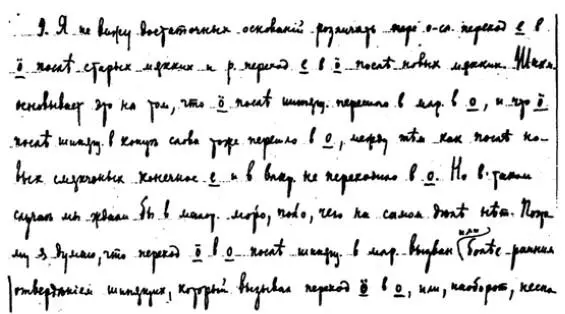 9. Я не вижу достаточных оснований различать переход е в
ö послѣ старых мягких и р. переход е в ö послѣ новых мягких. Шахм.
основывает это на том, что ö послѣ шипящ. перешло в мар. в о, и что ö
послѣ шипящ. в концѣ слова тоже перешло в о, между тѣм как послѣ но-
вых смягчоных конечное е и в влкр. не переходило в о. Но в таком
случаѣ мы ждали бы в малор. моро, поло, чего на самом дѣлѣ нѣт. Поэто
му я думаю, что переход ö в о послѣ шипящ. в мар. вызван или болѣе ранним
отвердѣнием шипящих, который вызывал переход ö в о, или, наоборот,